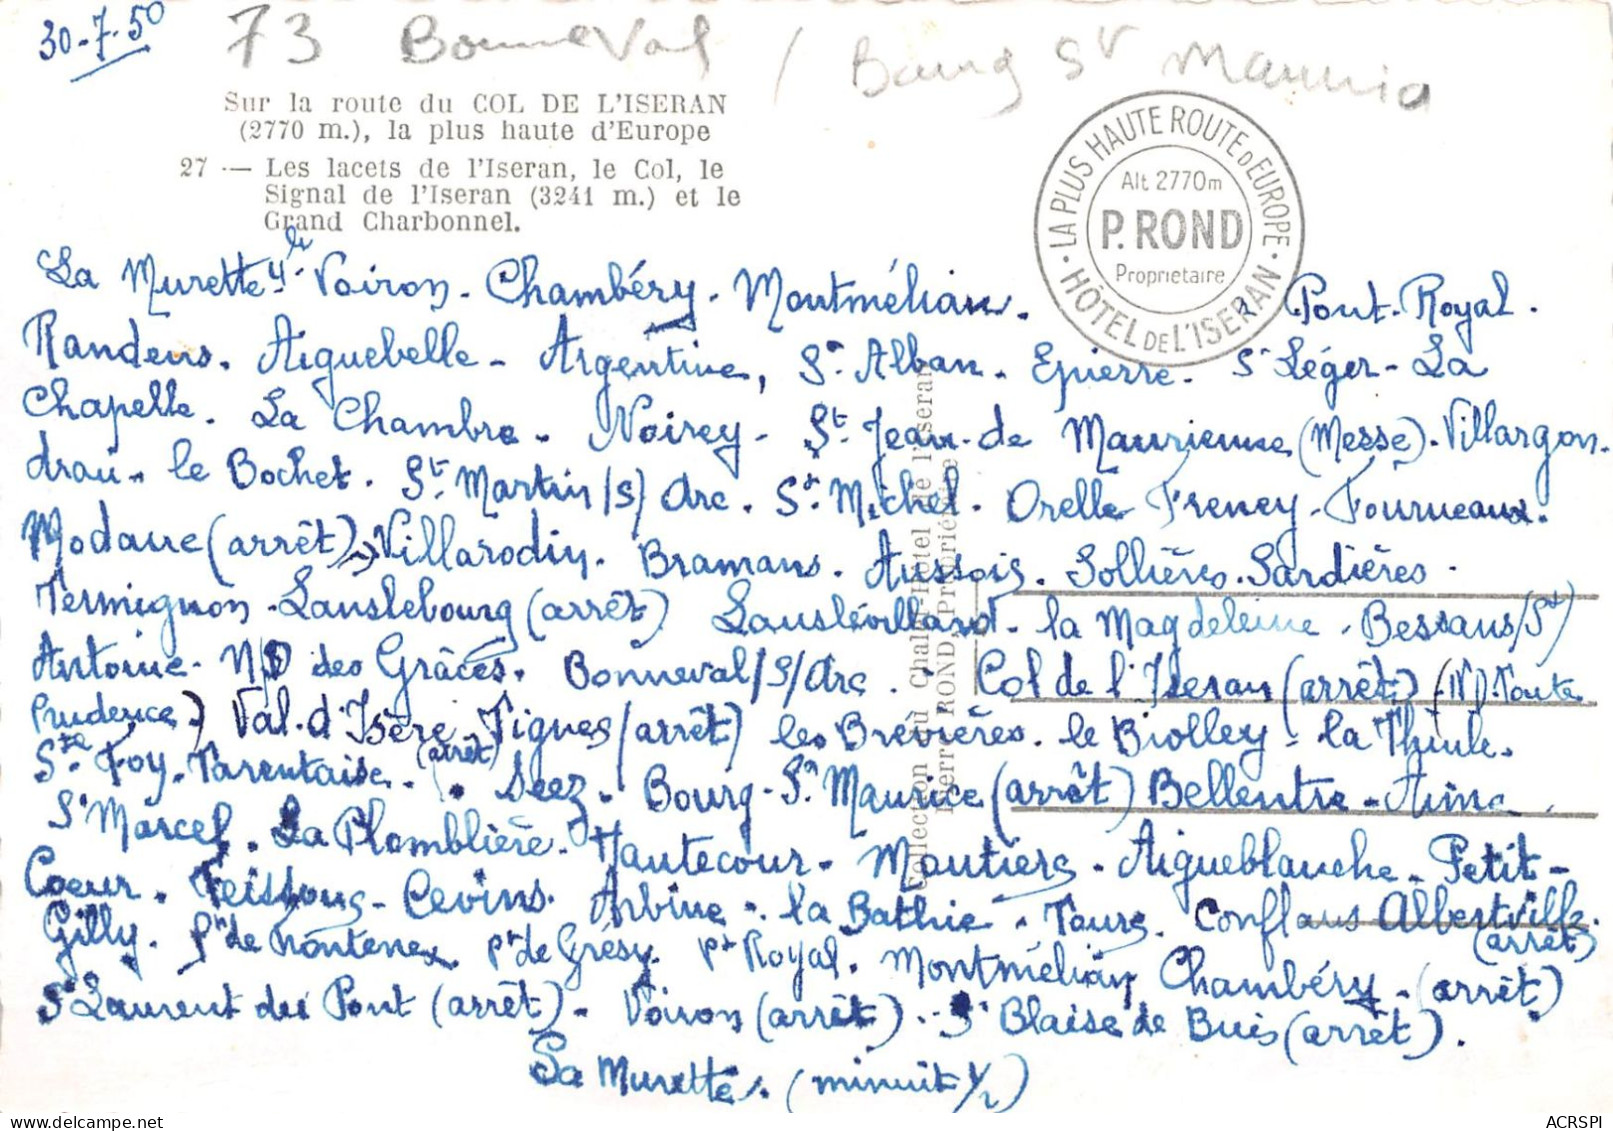 30-7-50
73 Bonneval / Bourg St
Sur la route du COL DE L'ISERAN
(2770 m.), la plus haute d'Europe
27 — Les lacets de l'Iseran, le Col, le
Signal de l'Iseran (3241 m.) et le
Grand Charbonnel.
LA PLUS HAUTE ROUTE D'EUROPE
Alt 2770m
P. ROND
Proprietaire
HÔTEL DE L'ISERAN
La Murette 4h. Voiron - Chambéry - Montmélian. Pont-Royal.
Randens. Aiguebelle - Argentine, St Alban. Epierre. St Léger - La
Chapelle. La Chambre. Noirey - St. Jean-de Maurienne (Messe). Villargon-
drau. le Bochet. St. Martin/S/Arc. St. Michel. Orelle Freney - Fourneaux.
Modane (arrêt) Villarodin. Bramans. Aussois. Sollières. Sardières.
Termignon - Lanslebourg (arrêt) Lanslevillard. la Magdeleine. Bessans (St
Antoine. ND des Grâces. Bonneval/S/Arc. Col de l'Iseran (arrêt) (N) Toute
Prudence) Val d'Isère Tignes (arrêt) les Brévières. le Biolley - la Thuile.
Ste Foy. Tarentaise. (arrêt) Seez. Bourg-St Maurice (arrêt) Bellentre - Aime
St Marcel. La Plombière. Hautecour - Moutiers - Aigueblanche - Petit-
Coeur. Feissons - Cevins. Arbine. la Bathie. Tours. Conflans Albertville.
(arrêt)
Gilly. Pt de Grésy. Pt Royal. Montmélian Chambéry - (arrêt)
St Laurent du Pont (arrêt) - Voiron (arrêt). St Blaise de Buis (arrêt).
La Murette. (minuit 1/2)
Collection du Chalet-Hôtel de l'Iseran
Pierre ROND Propriétaire
ACRSPI